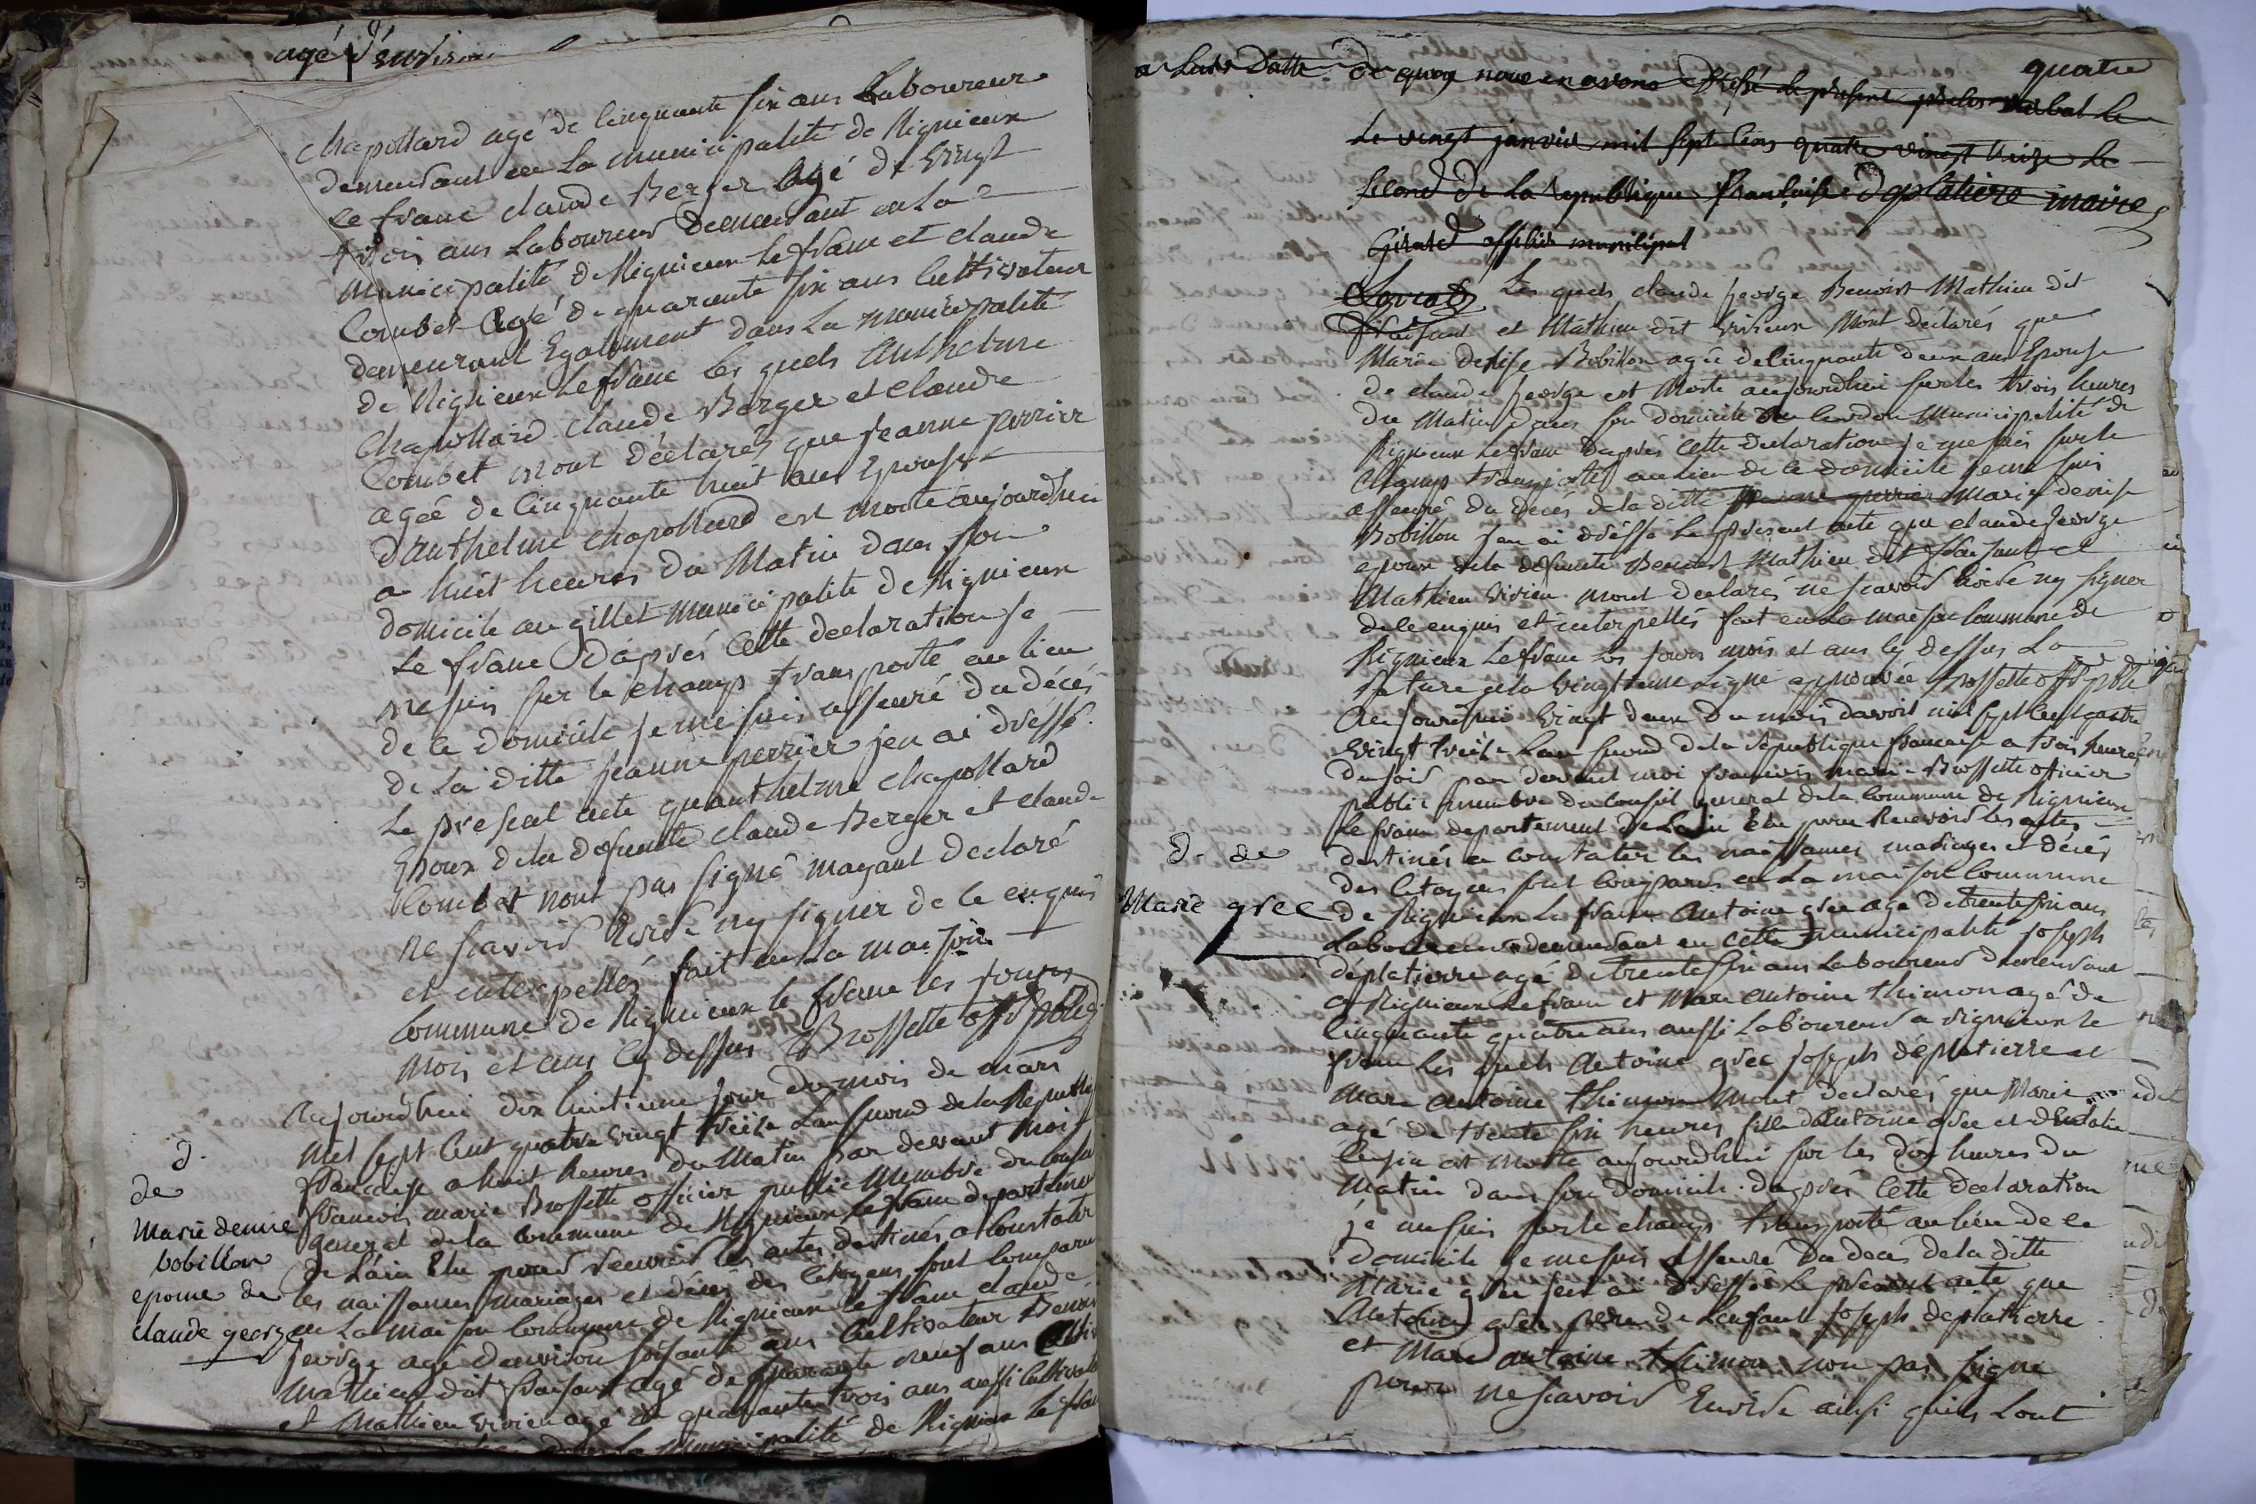 agé d'environ
chapollard agé de Cinquante six ans Laboureur
demeurant en La municipalité de Rignieux
Le franc claude Berger agé de vingt
trois ans Laboureur demeurant en La
municipalité de Rignieux Le franc et claude
Combet agé de quarante six ans Cultivateur
demeurant Egalement dans La municipalité
de Rignieux Le franc Les quels Anthelme
Chapollard claude Berger et claude
Combet mont déclarés que jeanne perrier
agée de Cinquante huit ans Epouse
d'anthelme chapollard est morte aujourdhui
a huit heures du Matin dans son
domicile au gillet municipalité de Rignieux
Le franc d'aprés Cette declaration je
me suis sur le champ transporté au lieu
de ce domicile je me suis asseuré du décés
de La ditte jeanne perrier jen ai dréssé
Le present acte qu'anthelme chapollard
Epoux de la defunte claude Berger et claude
Combet nont pas signé mayant declaré
ne scavoir Ecrire ny signer de ce enquis
et interpellés fait en La maison
Commune de Rignieux le franc les jours
mois et ans cy dessus Brossette off. public
d.
de
Marie denise
bobillon
epouse de
claude george
Aujourdhui dix huitieme jour du mois de mars
mil sept Cent quatre vingt treize Lan second de la Republ
francaise a huit heures du Matin par devant Moi
francois marie Brossette officier public Membre du Conseil
general de la commune de Rignieux Le franc departement
de Lain Elu pour recevoir les actes destinés a Constater
les naissances mariages et décés des Citoyens sont Comparu
en La maison Commune de Rignieux Le franc claude
jeorge agé d'environ soisante ans Cultivateur Benoist
Mathieu dit fraisant agé de quarante neuf ans
et Mathieu vivien agé de quarante trois ans aussi Cultivat
La municipalité de Rignieux le fran
quatre
a Ladte Datte De quoy nous en avons dressé le present procés verbal Le
Le vingt janvier mil sept Cens quatre vingt treize Le
second de La republique francaise Deplatiere maire
Girard officier municipal
Les quels claude jeorge Benoist Mathieu dit
fraisant et Mathieu dit vivieux Mont declarés que
Marie denise Bobillon agée de Cinquante deux ans Epouse
de claude jeorge est Morte aujourdhui sur les trois heures
du Matin dans son domicile municipalité de
Rignieux Le franc daprés Cette declaration je me suis sur le
champ transporté au lieu de ce domicile je me suis
asseuré du decés de la ditte jeanne perrier marie denise
Bobillon jen ai dréssé Le present acte que claude jeorge
epoux de la defunte Benoist Mathieu dit fraisant et
Mathieu vivien mont declarés ne scavoir Ecrire ny signer
de ce enquis et interpellés fait en La maison Commune de
Rignieux Le franc les jours mois et ans cy dessus La
rature a la vingt eme Ligne approuvée Brossette off. public
Aujourdhui vingt deux du mois davril mil sept Cent quatre
vingt treize Lan second de la republique francaise a trois heures
du soir par devant moi francois marie Brossette officier
public membre du Conseil general de la Commune de Rignieux
Le franc departement de Lain Elu pour Recevoir les actes
d. de
Marie gree
destinés a constater les naissances mariages et décés
des Citoyens sont Comparus en La maison Commune
de Rignieux Le franc Antoine gree agé de trente six ans
Laboureur demeurant en cette municipalité joseph
déplatierre agé de trente six ans Laboureur demeurant
a Rignieux Le franc et Marc Antoine thimon agé de
Cinquante quatre ans aussi Laboureur a rignieux le
franc Les quels Antoine grée joseph deplatierre et
Marc Antoine thimon Mont declarés que Marie
agé de trente six heures fille d'antoine grée et
est Morte aujourdhui sur les dix heures du
Matin dans son domicile. daprés Cette declaration
je me suis sur le champ transporté au lieu de ce
domicile je me suis asseuré du decés de la ditte
Marie grée jen ai dressé Le present acte que
Antoine grée pere de Lenfant joseph deplatierre
et Marc antoine thimon non pas signé
pour ne scavoir Ecrire ainsi quils Lont